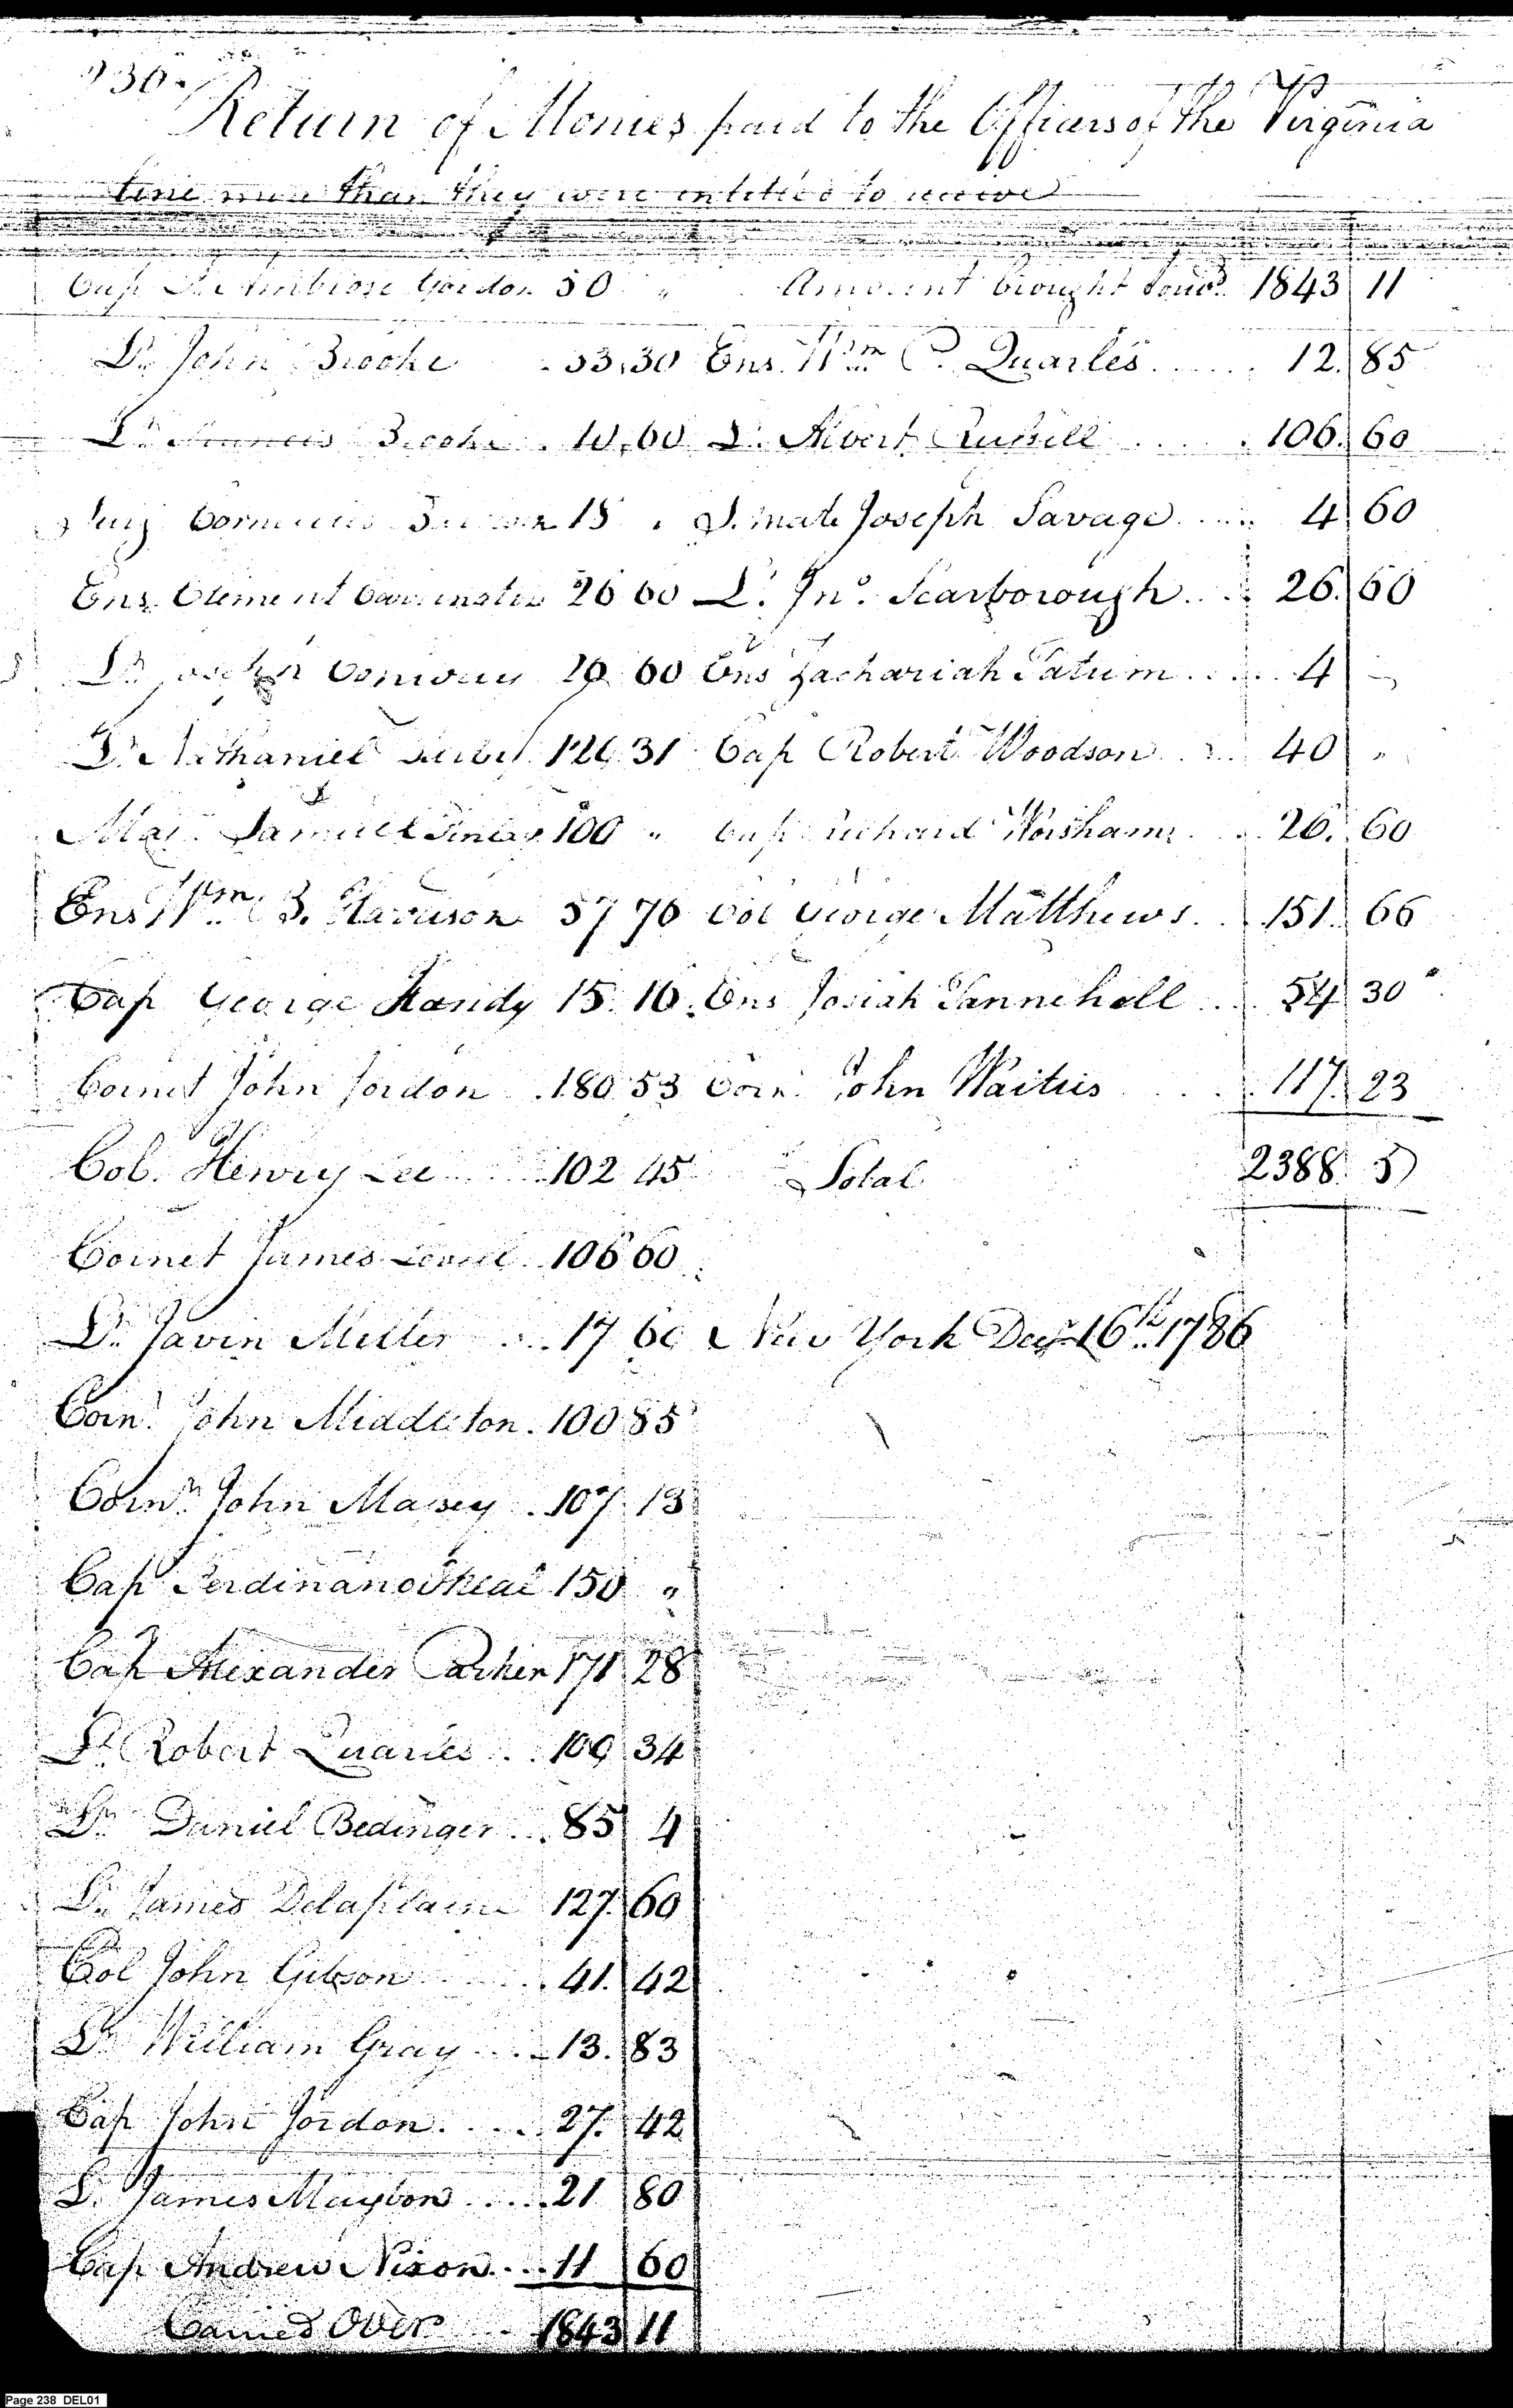 Return of Monies paid to the Officers of the Virginia
Line more than they were intitled to receive
Cap Ambrose Gordon 50 "
Lt. John Brooke . 53.30
Lt. Francis Brooke . 10.60
Surg 15 .
Ens. Clement Carrington 26 60
Lt. Conway 60
Lt. Nathaniel 31
Maj. Samuel Finley 100 "
Ens Wm. B. Harrison 57 70
Cap George Handy 15. 10.
Cornet John Jordon . 180 53
Col. Henry Lee . . . . 102 45
Cornet James . 106 60
Lt. Javin Miller . . . 17 60
Corn. John Middleton . 100 85
Corn. John Massey . 107 13
Cap Ferdinand 150 "
Cap Alexander Parker 171 28
Lt Robert Quarles . . 109 34
Lt. Daniel Bedinger . . . 85 4
Lt. James Delaplain 127. 60
Col John Gibson . . . . 41. 42
Lt. William Gray . . . 13. 83
Cap John Jordon . . . . 27. 42
Lt. James Maybon . . . . 21 80
Cap Andrew Nixon . . . 11 60
Carried Over . . 1843 11
Amount brought forwd. 1843 11
Ens. Wm. P. Quarles . . . . . . 12. 85
Lt. Albert Russell . . . . . 106. 60
S. mate Joseph Savage . . . . . 4 60
Lt. Jno. Scarborough . . . 26. 60
Ens Zachariah Tatum . . . . . 4 "
Cap Robert Woodson . . . 40 "
Cap Richard Worsham . . 26. 60
Col George Matthews . . 151. 66
Ens Josiah Tannehill . . . 54 30
Corn. John Waiters . . . . 117. 23
Total 2388. 5
New York Decr. 16th. 1786
Page 238 DEL01